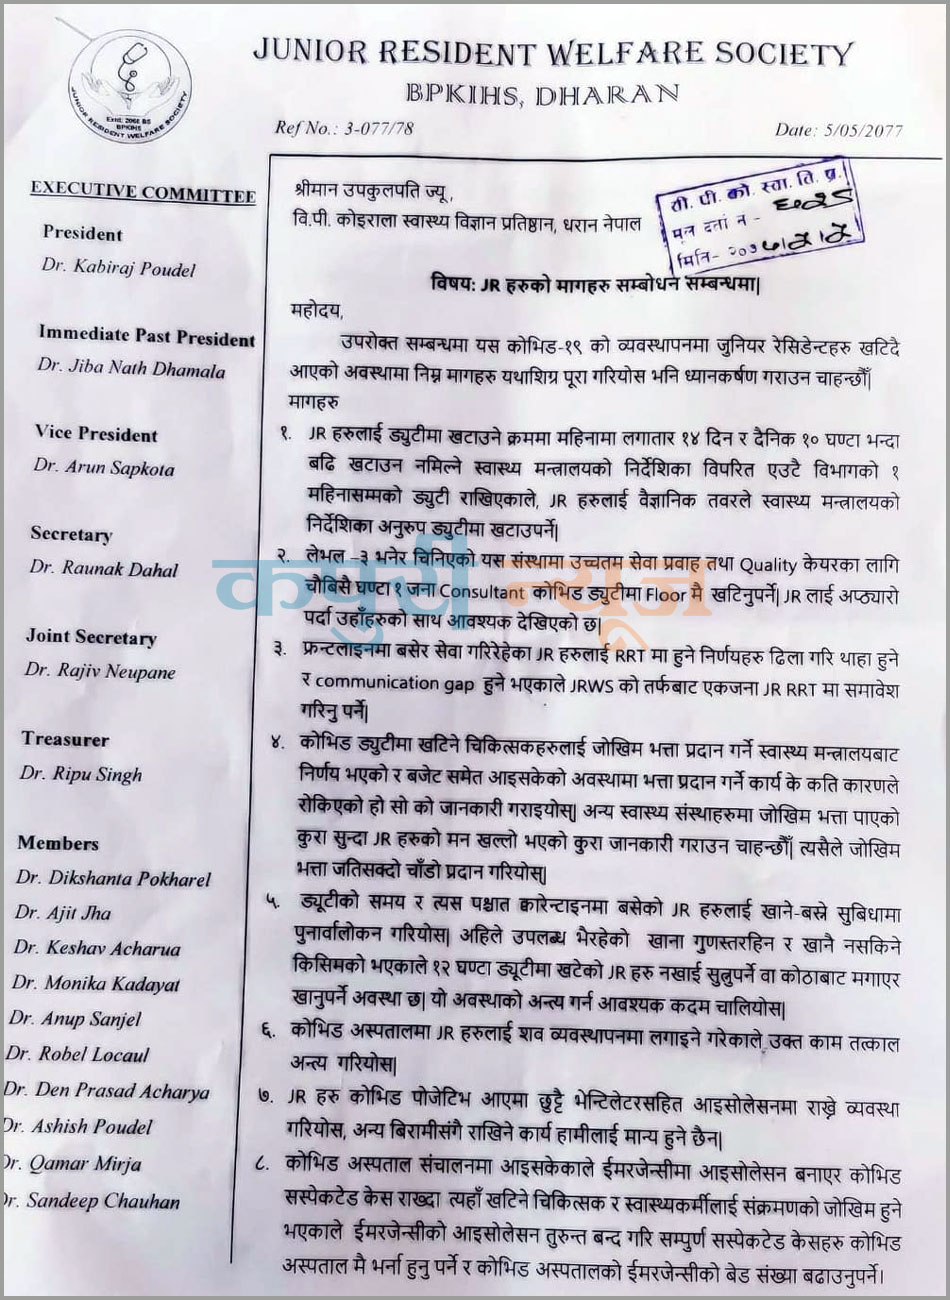 JUNIOR RESIDENT WELFARE SOCIETY
BPKIHS, DHARAN
Estd: 2068 BS
BPKIHS
JUNIOR RESIDENT WELFARE SOCIETY
Ref No.: 3-077/78
Date: 5/05/2077
EXECUTIVE COMMITTEE
President
Dr. Kabiraj Poudel
Immediate Past President
Dr. Jiba Nath Dhamala
Vice President
Dr. Arun Sapkota
Secretary
Dr. Raunak Dahal
Joint Secretary
Dr. Rajiv Neupane
Treasurer
Dr. Ripu Singh
Members
Dr. Dikshanta Pokharel
Dr. Ajit Jha
Dr. Keshav Acharua
Dr. Monika Kadayat
Dr. Anup Sanjel
Dr. Robel Locaul
Dr. Den Prasad Acharya
Dr. Ashish Poudel
Dr. Qamar Mirja
Dr. Sandeep Chauhan
श्रीमान उपकुलपति ज्यू,
वि.पी. कोइराला स्वास्थ्य विज्ञान प्रतिष्ठान, धरान नेपाल
वी. पी. को. स्वा. वि. प्र.
मूल दर्ता नं -
मिति- २०७
विषय: JR हरुको मागहरु सम्बोधन सम्बन्धमा|
महोदय,
उपरोक्त सम्बन्धमा यस कोभिड-१९ को व्यवस्थापनमा जुनियर रेसिडेन्टहरु खटिदै
आएको अवस्थामा निम्न मागहरु यथाशिग्र पूरा गरियोस भनि ध्यानकर्षण गराउन चाहन्छौँ|
मागहरु
१. JR हरुलाई ड्युटीमा खटाउने क्रममा महिनामा लगातार १४ दिन र दैनिक १० घण्टा भन्दा
बढि खटाउन नमिल्ने स्वास्थ्य मन्त्रालयको निर्देशिका विपरित एउटै विभागको १
महिनासम्मको ड्युटी राखिएकाले, JR हरुलाई वैज्ञानिक तवरले स्वास्थ्य मन्त्रालयको
निर्देशिका अनुरुप ड्युटीमा खटाउपर्ने|
२. लेभल -३ भनेर चिनिएको यस संस्थामा उच्चतम सेवा प्रवाह तथा Quality केयरका लागि
चौबिसै घण्टा १ जना Consultant कोभिड ड्युटीमा Floor मै खटिनुपर्ने| JR लाई अप्ठ्यारो
पर्दा उहाँहरुको साथ आवश्यक देखिएको छ|
३. फ्रन्टलाइनमा बसेर सेवा गरिरेहेका JR हरुलाई RRT मा हुने निर्णयहरु ढिला गरि थाहा हुने
र communication gap हुने भएकाले JRWS को तर्फबाट एकजना JR RRT मा समावेश
गरिनु पर्ने|
४. कोभिड ड्युटीमा खटिने चिकित्सकहरुलाई जोखिम भत्ता प्रदान गर्ने स्वास्थ्य मन्त्रालयबाट
निर्णय भएको र बजेट समेत आइसकेको अवस्थामा भत्ता प्रदान गर्ने कार्य के कति कारणले
रोकिएको हो सो को जानकारी गराइयोस्| अन्य स्वास्थ्य संस्थाहरुमा जोखिम भत्ता पाएको
कुरा सुन्दा JR हरुको मन खल्लो भएको कुरा जानकारी गराउन चाहन्छौँ| त्यसैले जोखिम
भत्ता जतिसक्दो चाँडो प्रदान गरियोस्|
५. ड्यूटीको समय र त्यस पश्चात क्वारेन्टाइनमा बसेको JR हरुलाई खाने-बस्ने सुबिधामा
पुनार्वालोकन गरियोस| अहिले उपलब्ध भैरहेको खाना गुणस्तरहिन र खानै नसकिने
किसिमको भएकाले १२ घण्टा ड्यूटीमा खटेको JR हरु नखाई सुत्नुपर्ने वा कोठाबाट मगाएर
खानुपर्ने अवस्था छ| यो अवस्थाको अन्त्य गर्न आवश्यक कदम चालियोस्|
६. कोभिड अस्पतालमा JR हरुलाई शव व्यवस्थापनमा लगाइने गरेकाले उक्त काम तत्काल
अन्त्य गरियोस|
७. JR हरु कोभिड पोजेटिभ आएमा छुट्टै भेन्टिलेटरसहित आइसोलेसनमा राख्ने व्यवस्था
गरियोस, अन्य बिरामीसंगै राखिने कार्य हामीलाई मान्य हुने छैन|
८. कोभिड अस्पताल संचालनमा आइसकेकाले ईमरजेन्सीमा आइसोलेसन बनाएर कोभिड
सस्पेकटेड केस राख्दा त्यहाँ खटिने चिकित्सक र स्वास्थ्यकर्मीलाई संक्रमणको जोखिम हुने
भएकाले ईमरजेन्सीको आइसोलेसन तुरुन्त बन्द गरि सम्पुर्ण सस्पेकटेड केसहरु कोभिड
अस्पताल मै भर्ना हुनु पर्ने र कोभिड अस्पतालको ईमरजेन्सीको बेड संख्या बढाउनुपर्ने।
कपुरी न्यूज